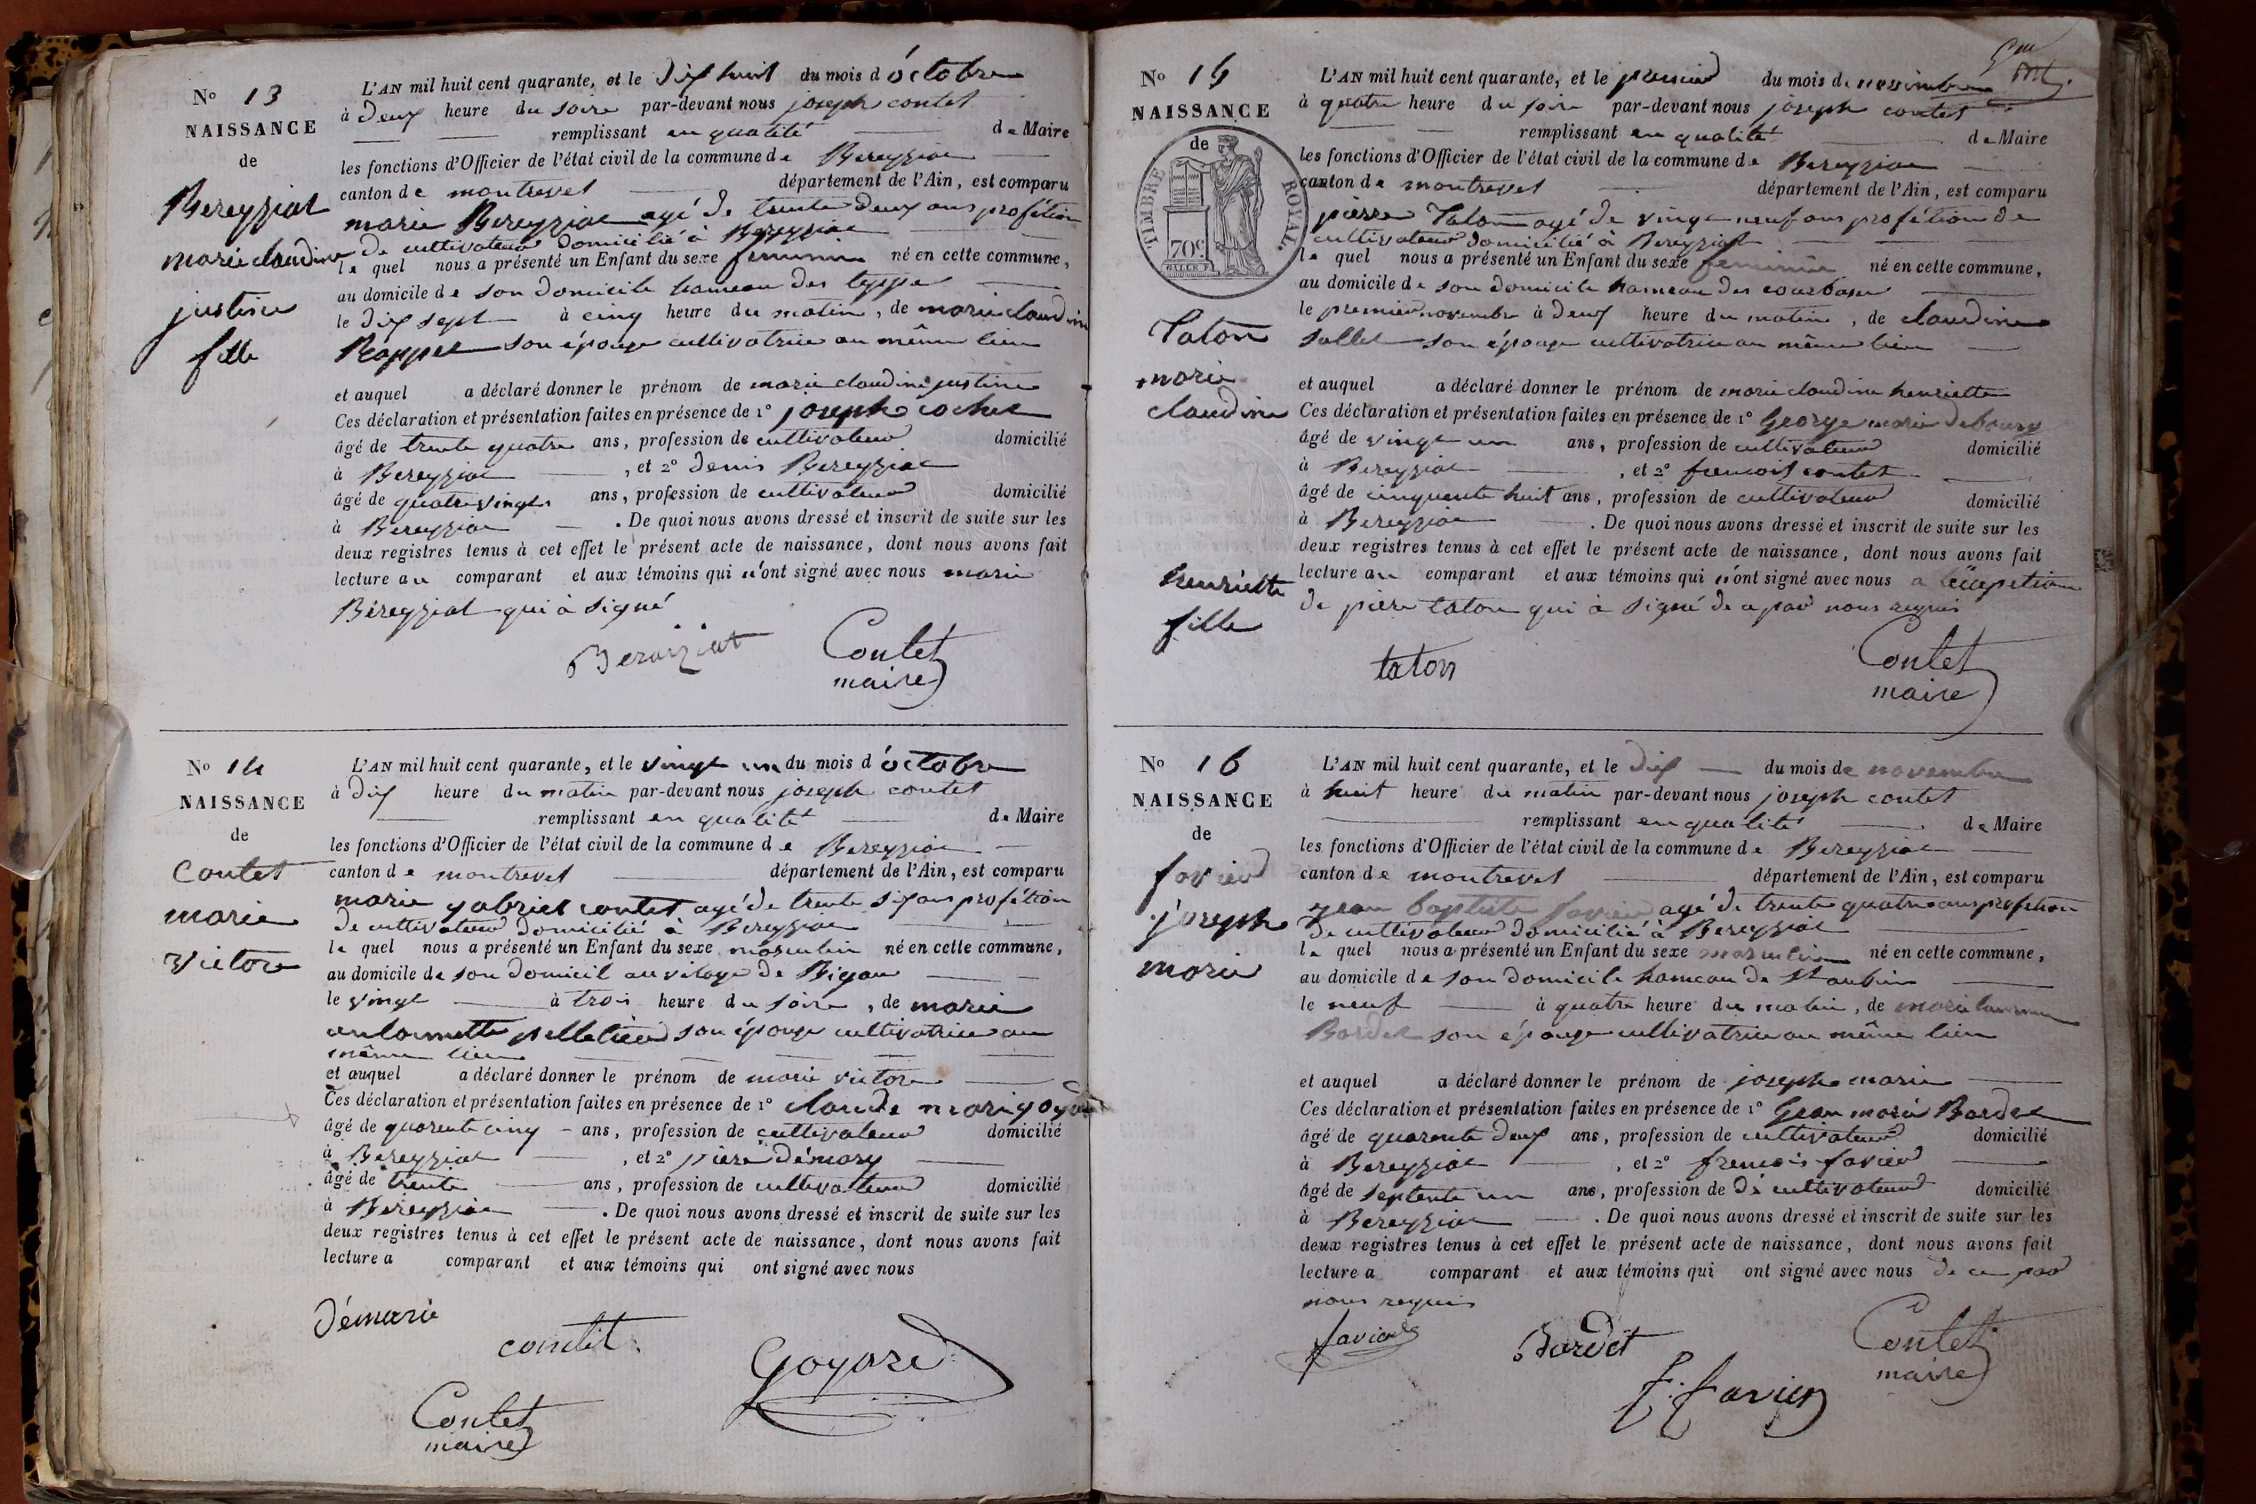 No 13
NAISSANCE
de
Bereyziat
marie claudine
justine
fille
L'AN mil huit cent quarante, et le dix huit du mois d'octobre
à deux heure du soire par-devant nous joseph contet
remplissant en qualité de Maire
les fonctions d'Officier de l'état civil de la commune de Bereyziat
canton de montrevel département de l'Ain, est comparu
marie Bereyziat agé de trente deux ans profétion
de cultivateur domicilié à Bereyziat
le quel nous a présenté un Enfant du sexe feminin né en cette commune,
au domicile de son domicile hameau des teppe
le dix sept à cinq heure du matin, de marie claudine
son épouse cultivatrice au même lieu
et auquel a déclaré donner le prénom de marie claudine justine
Ces déclaration et présentation faites en présence de 1° joseph cochet
âgé de trente quatre ans, profession de cultivateur domicilié
à Bereyziat, et 2° denis Bereyziat
âgé de quatre vingt ans, profession de cultivateur domicilié
à Bereyziat. De quoi nous avons dressé et inscrit de suite sur les
deux registres tenus à cet effet le présent acte de naissance, dont nous avons fait
lecture au comparant et aux témoins qui n'ont signé avec nous marie
Béreyziat qui à signé
Beraiziat
Contet
maire
No 14
NAISSANCE
de
Contet
marie
victore
L'AN mil huit cent quarante, et le vingt un du mois d'octobre
à dix heure du matin par-devant nous joseph contet
remplissant en qualité de Maire
les fonctions d'Officier de l'état civil de la commune de Bereyziat
canton de montrevel département de l'Ain, est comparu
marie gabriel contet agé de trente six ans profétion
de cultivateur domicilié à Bereyziat
le quel nous a présenté un Enfant du sexe masculin né en cette commune,
au domicile de son domicil au vilage de
le vingt à trois heure du soire, de marie
antoinette pelletier son épouse cultivatrice au
même lieu
et auquel a déclaré donner le prénom de marie victore
Ces déclaration et présentation faites en présence de 1° claude marie goyard
âgé de quarente cinq ans, profession de cultivateur domicilié
à Bereyziat, et 2° pière démary
âgé de trente ans, profession de cultivateur domicilié
à Bereyziat. De quoi nous avons dressé et inscrit de suite sur les
deux registres tenus à cet effet le présent acte de naissance, dont nous avons fait
lecture a comparant et aux témoins qui ont signé avec nous
Démarie
contet
Goyard
Contet
maire
No 15
NAISSANCE
de
TIMBRE ROYAL
70c
Taton
marie
claudine
henriette
fille
L'AN mil huit cent quarante, et le premier du mois de novembre
à quatre heure du soire par-devant nous joseph contet
remplissant en qualité de Maire
les fonctions d'Officier de l'état civil de la commune de Bereyziat
canton de montrevel département de l'Ain, est comparu
pierre Taton agé de vingt neuf ans profétion de
cultivateur domicilié à Bereyziat
le quel nous a présenté un Enfant du sexe feminin né en cette commune,
au domicile de son domicile hameau des
le premier novembre à deux heure du matin, de claudine
sallet son épouse cultivatrice au même lieu
et auquel a déclaré donner le prénom de marie claudine henriette
Ces déclaration et présentation faites en présence de 1° George marie debourg
âgé de vingt un ans, profession de cultivateur domicilié
à Bereyziat, et 2° francois contet
âgé de cinquante huit ans, profession de cultivateur domicilié
à Bereyziat. De quoi nous avons dressé et inscrit de suite sur les
deux registres tenus à cet effet le présent acte de naissance, dont nous avons fait
lecture au comparant et aux témoins qui n'ont signé avec nous a
de pière taton qui à signé de ce par nous requis
taton
Contet
maire
No 16
NAISSANCE
de
favier
joseph
marie
L'AN mil huit cent quarante, et le dix du mois de novembre
à huit heure du matin par-devant nous joseph contet
remplissant en qualité de Maire
les fonctions d'Officier de l'état civil de la commune de Bereyziat
canton de montrevel département de l'Ain, est comparu
jean baptiste favier agé de trente quatre ans profétion
de cultivateur domicilié à Bereyziat
le quel nous a présenté un Enfant du sexe masculin né en cette commune,
au domicile de son domicile hameau de St aubin
le neuf à quatre heure du matin, de marie
Bordet son épouse cultivatrice au même lieu
et auquel a déclaré donner le prénom de joseph marie
Ces déclaration et présentation faites en présence de 1° Jean marie Bordet
âgé de quarante deux ans, profession de cultivateur domicilié
à Bereyziat, et 2° francois favier
âgé de septente un ans, profession de dé cultivateur domicilié
à Bereyziat. De quoi nous avons dressé et inscrit de suite sur les
deux registres tenus à cet effet le présent acte de naissance, dont nous avons fait
lecture a comparant et aux témoins qui ont signé avec nous de ce par
nous requis
favier
Bordet
Contet
maire
F. Favier